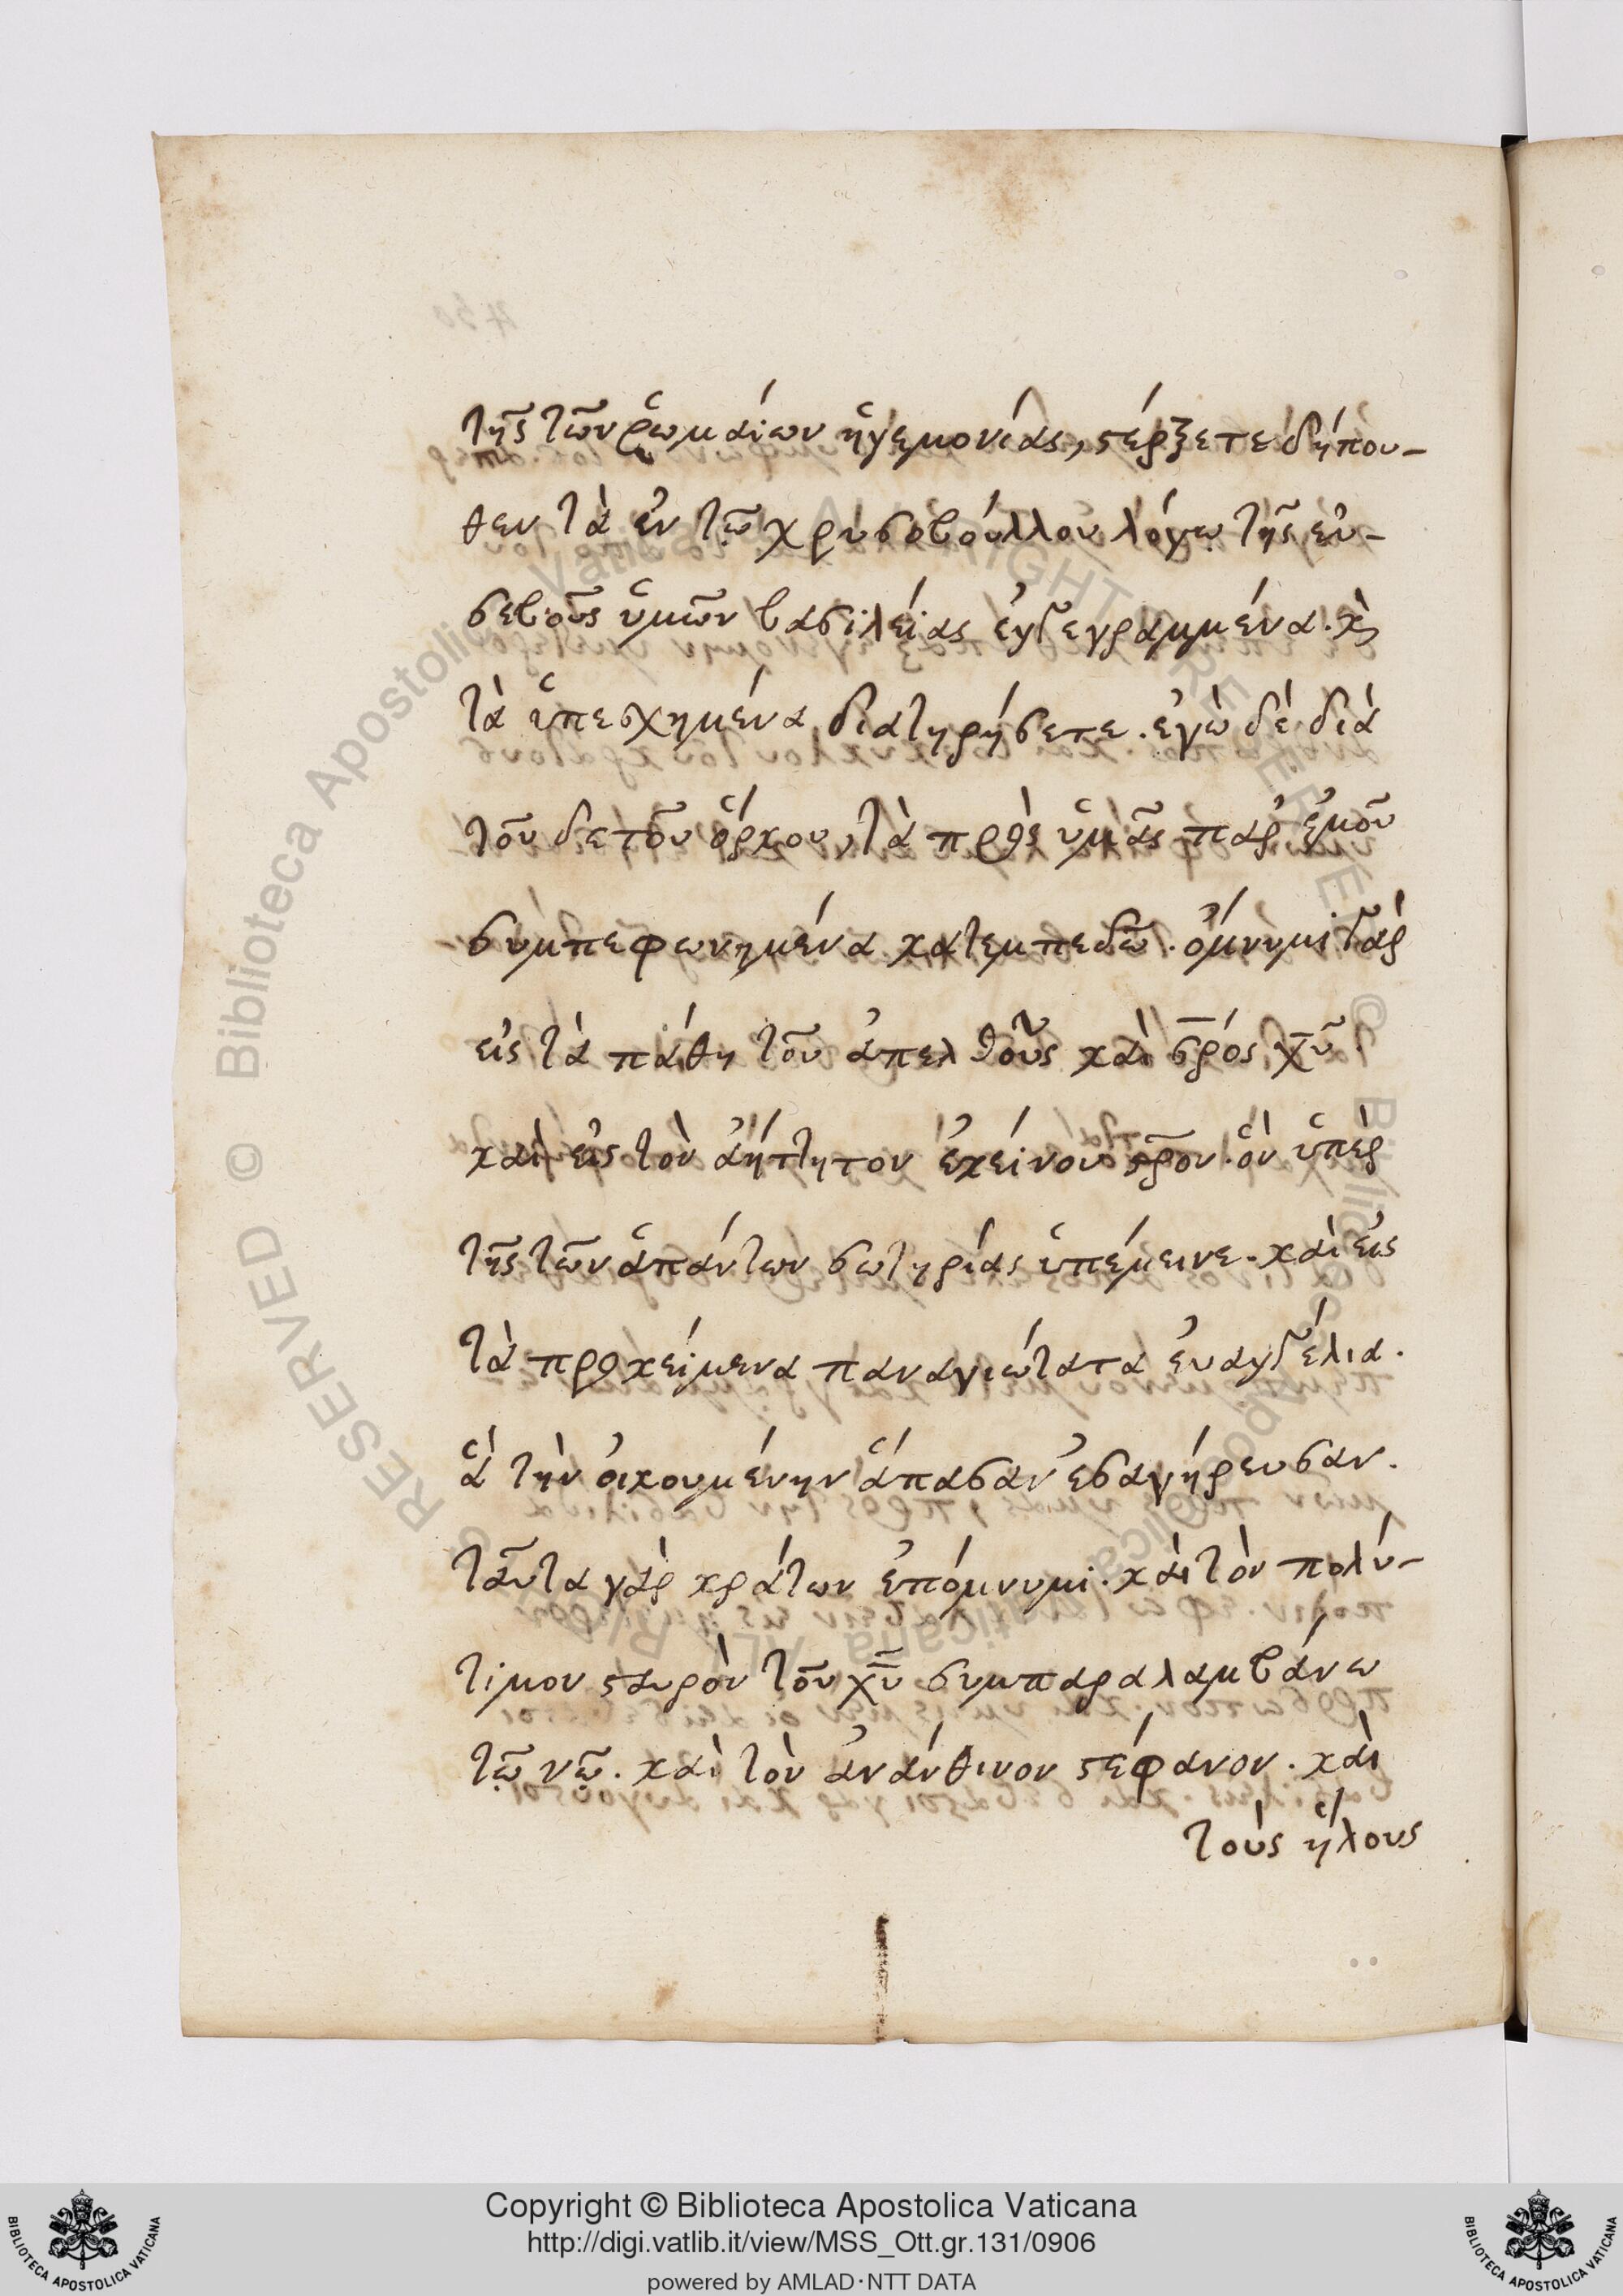 τῆς τῶν ῥωμαίων ἡγεμονίας, στέρξετε δήπου-
θεν τὰ ἐν τῷ χρυσοβούλλου λόγῳ τῆς εὐ-
σεβοῦς ὑμῶν βασιλείας ἐγγεγραμμένα. κ̀
τὰ ὑπεσχημένα διατηρήσετε. ἐγὼ δὲ διὰ
τοῦ δε τοῦ ὅρκου, τὰ πρὸς ὑμᾶς παρ' ἐμοῦ
συμπεφωνημένα κατεμπεδῶ. ὄμνυμι γὰρ
εἰς τὰ πάθη τοῦ ἀπελθοῦς καὶ σρός χυ
καὶ εἰς τὸν ἀήττητον ἐκείνου σρον. ὃν ὑπὲρ
τῆς τῶν ἁπάντων σωτηρίας ὑπέμεινε. καὶ εἰς
τὰ προκείμενα παναγιώτατα ἐυαγγέλια.
ἃ τὴν οἰκουμένην ἅπασαν ἐσαγήρευσαν.
ταῦτα γὰρ κράτων ἐπόμνυμι. καὶ τὸν πολύ-
τιμον σταυρὸν τοῦ χυ συμπαραλαμβάνω
τῷ νῷ. καὶ τὸν ἀνάνθινον στέφανον. καὶ
τοὺς ἥλους
Copyright © Biblioteca Apostolica Vaticana
http://digi.vatlib.it/view/MSS_Ott.gr.131/0906
powered by AMLAD·NTT DATA
BIBLIOTECA APOSTOLICA VATICANA
BIBLIOTECA APOSTOLICA VATICANA